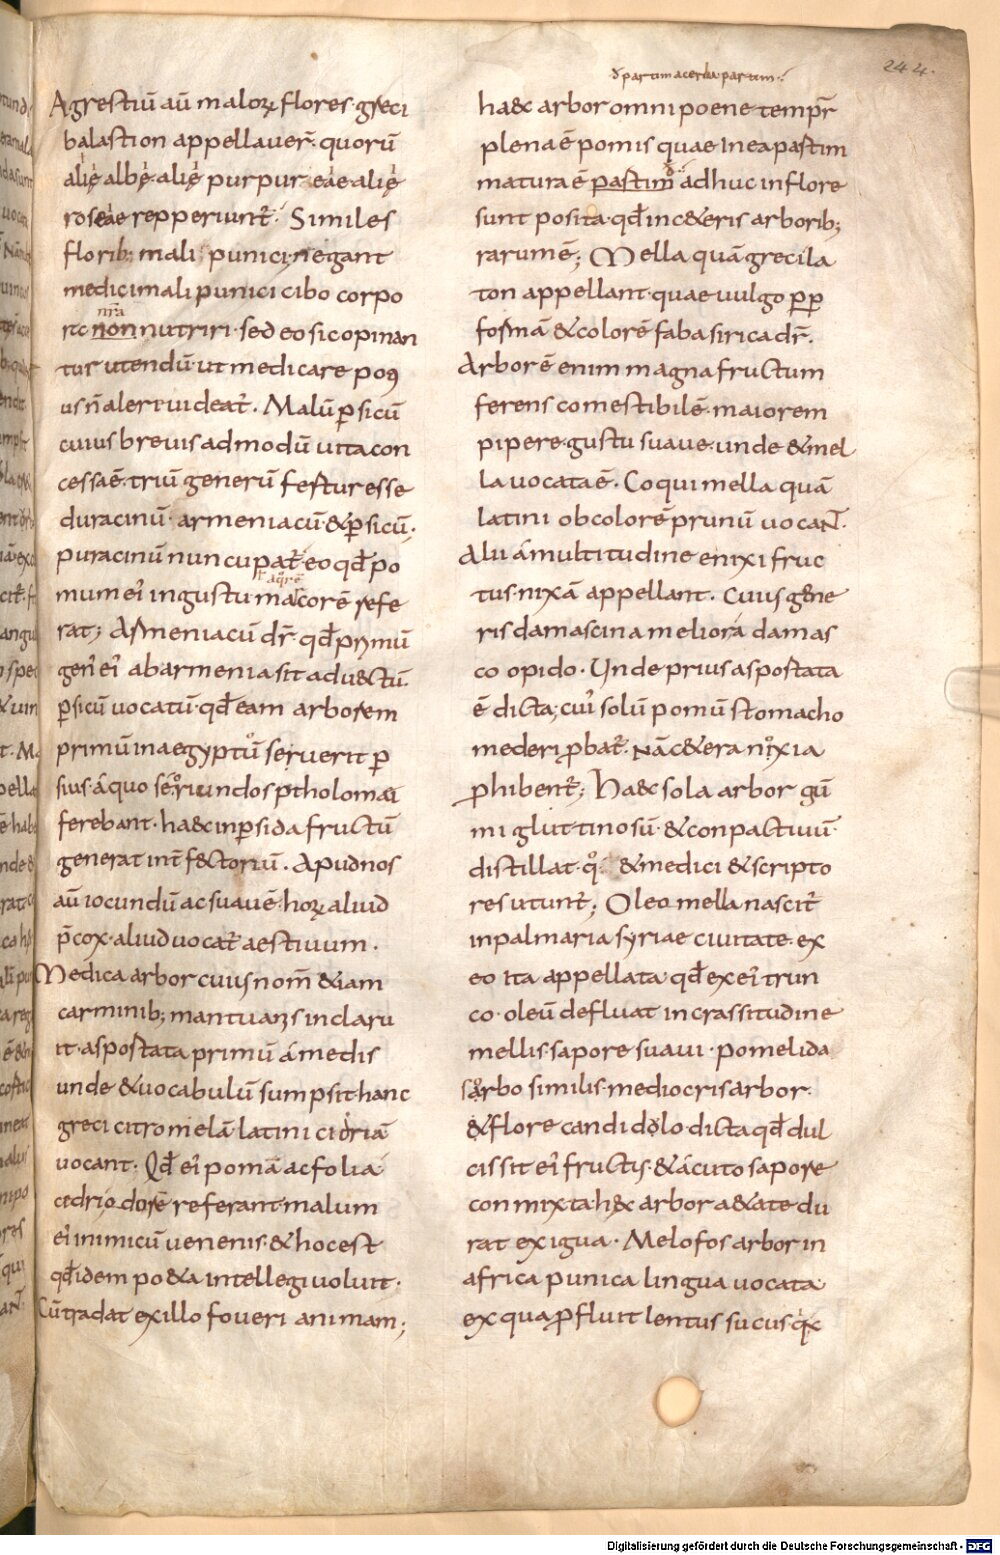 244.
Agrestiū aū malorꝝ flores greci
balastion appellaueř. quorū
alię albę. alię purpureae alię
roseae repperiunt̃. Similes
florib; mali punici, negant
medici mali punici cibo corpo
nr̃a
rc non nutriri. sed eo sic opinan
tur utendū. ut medicare potꝰ
us n̄ alere uideat̃. Malū ꝑsicū
cuius breuis admodū uita con
cessa ē. triū generū fertur esse
duracinū. armeniacū. & ꝑsicū.
puracinū nuncupat̃ eo qđ po
mum ei᷒ in gustu macorē refe
rat; Armeniacū dr̃ qđ primū
gen᷒ ei᷒ ab armenia sit aduectū.
ꝑsicū uocatū. qđ eam arborem
primū in aegyptū seruerit ꝑ
sius. á quo se oriundos ptholomei
ferebant. haec in ꝑsida fructū
generat int̃fectoriū. Apud nos
aū iocundū ac suauē. horꝝ aliud
p̄cox. aliud uocat̃ aestiuum.
Medica arbor cuius nom̃ &iam
carminib; mantuanꝰ inclaru
it. aspostata primū á medis
unde & uocabulū sumpsit. hanc
greci citromelā. latini cidriā
uocant. Qđ ei᷒ pomā ac folia
cedri odorē referant. malum
ei᷒ inimicū uenenis. & hoc est
qđ idem po&a intellegi uoluit.
Cū tradat ex illo foueri animam;
ð partim acerba partim
haec arbor omni poene tempr̃
plena ē pomis quae in ea pastim
matura ē pastim adhuc in flore
sunt posita. qđ in c&eris arborib;
rarum ē; Mella quā greci la
ton appellant. quae uulgo ꝓp
formā & colorē faba sirica dr̃.
Arbor ē enim magna fructum
ferens comestibilē. maiorem
pipere. gustu suaue. unde & mel
la uocata ē. Coquimella quā
latini ob colorē prunū uocaÑ.
Alii á multitudine enixi fruc
tus. nixā appellant. Cuius gene
ris damascina meliora á damas
co opido. Unde prius aspostata
ē dicta; cui᷒ solū pomū stomacho
mederi ꝓbat̃. Nā c&era noxia
ꝑhibent̃; Haec sola arbor gū
mi gluttinosū. & conpactiuū.
distillat. qͦ & medici & scripto
res utunt̃; Oleo mella nascit̃
in palmaria syriae ciuitate. ex
eo ita appellata qđ ex ei᷒ trun
co. oleū defluat in crassitudine
mellis. sapore suaui. Pomelida
sorbo similis. mediocris arbor.
& flore candidolo. dicta qđ dul
cis sit ei᷒ fructis. & ácuto sapore
con mixta h&c arbor a&ate du
rat exigua. Melofos arbor in
africa punica lingua uocata
ex qua ꝓfluit lentus sucus. q̇
Digitalisierung gefördert durch die Deutsche Forschungsgemeinschaft - DFG